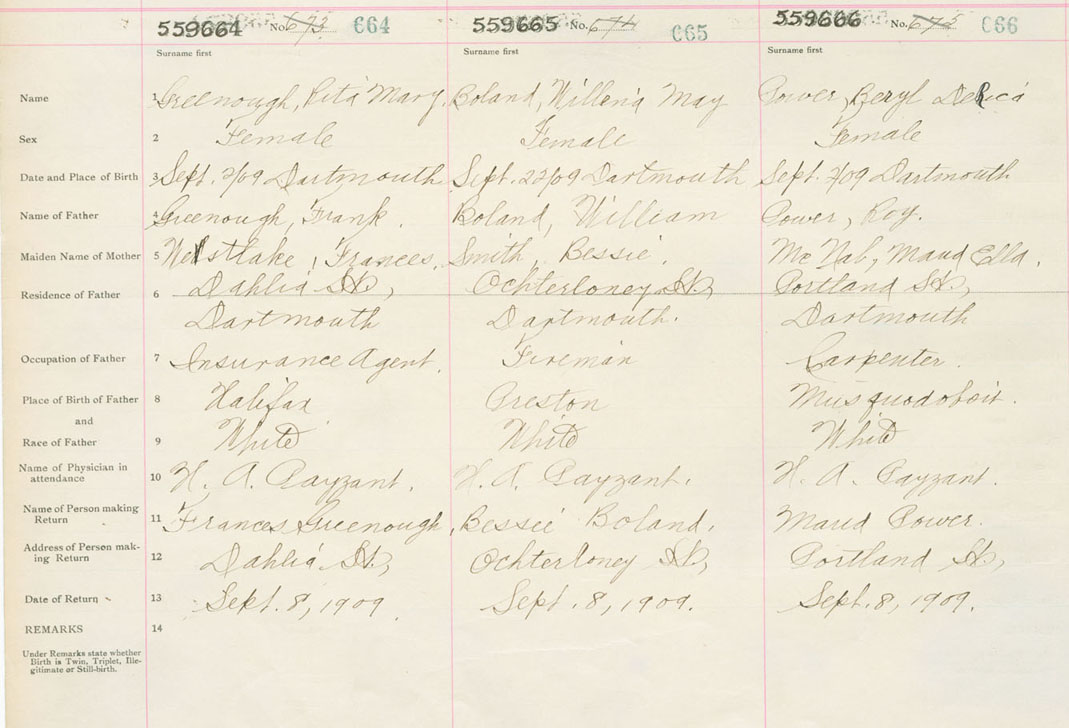 559664 No. 673 664 559665 No. 674 665 559666 No. 675 666
Surname first Surname first Surname first
Name 1 Greenough, Rita Mary. Boland, Willena May Power, Beryl
Sex 2 Female Female Female
Date and Place of Birth 3 Sept. 2/09 Dartmouth Sept. 22/09 Dartmouth Sept. 2/09 Dartmouth
Name of Father 4 Greenough, Frank. Boland, William Power, Roy.
Maiden Name of Mother 5 Westlake, Frances. Smith, Bessie. Mc Nab, Maud Ella.
Residence of Father 6 Dahlia St, Ochterloney St, Portland St,
Dartmouth Dartmouth. Dartmouth
Occupation of Father 7 Insurance Agent. Fireman Carpenter.
Place of Birth of Father 8 Halifax Preston Musquodoboit.
and
Race of Father 9 White White White
Name of Physician in
attendance 10 H. A. Payzant. H. A. Payzant. H. A. Payzant.
Name of Person making
Return 11 Frances Greenough, Bessie Boland. Maud Power.
Address of Person mak-
ing Return 12 Dahlia St, Ochterloney St, Portland St,
Date of Return 13 Sept. 8, 1909. Sept. 8, 1909. Sept. 8, 1909.
REMARKS 14
Under Remarks state whether
Birth is Twin, Triplet, Ille-
gitimate or Still-birth.